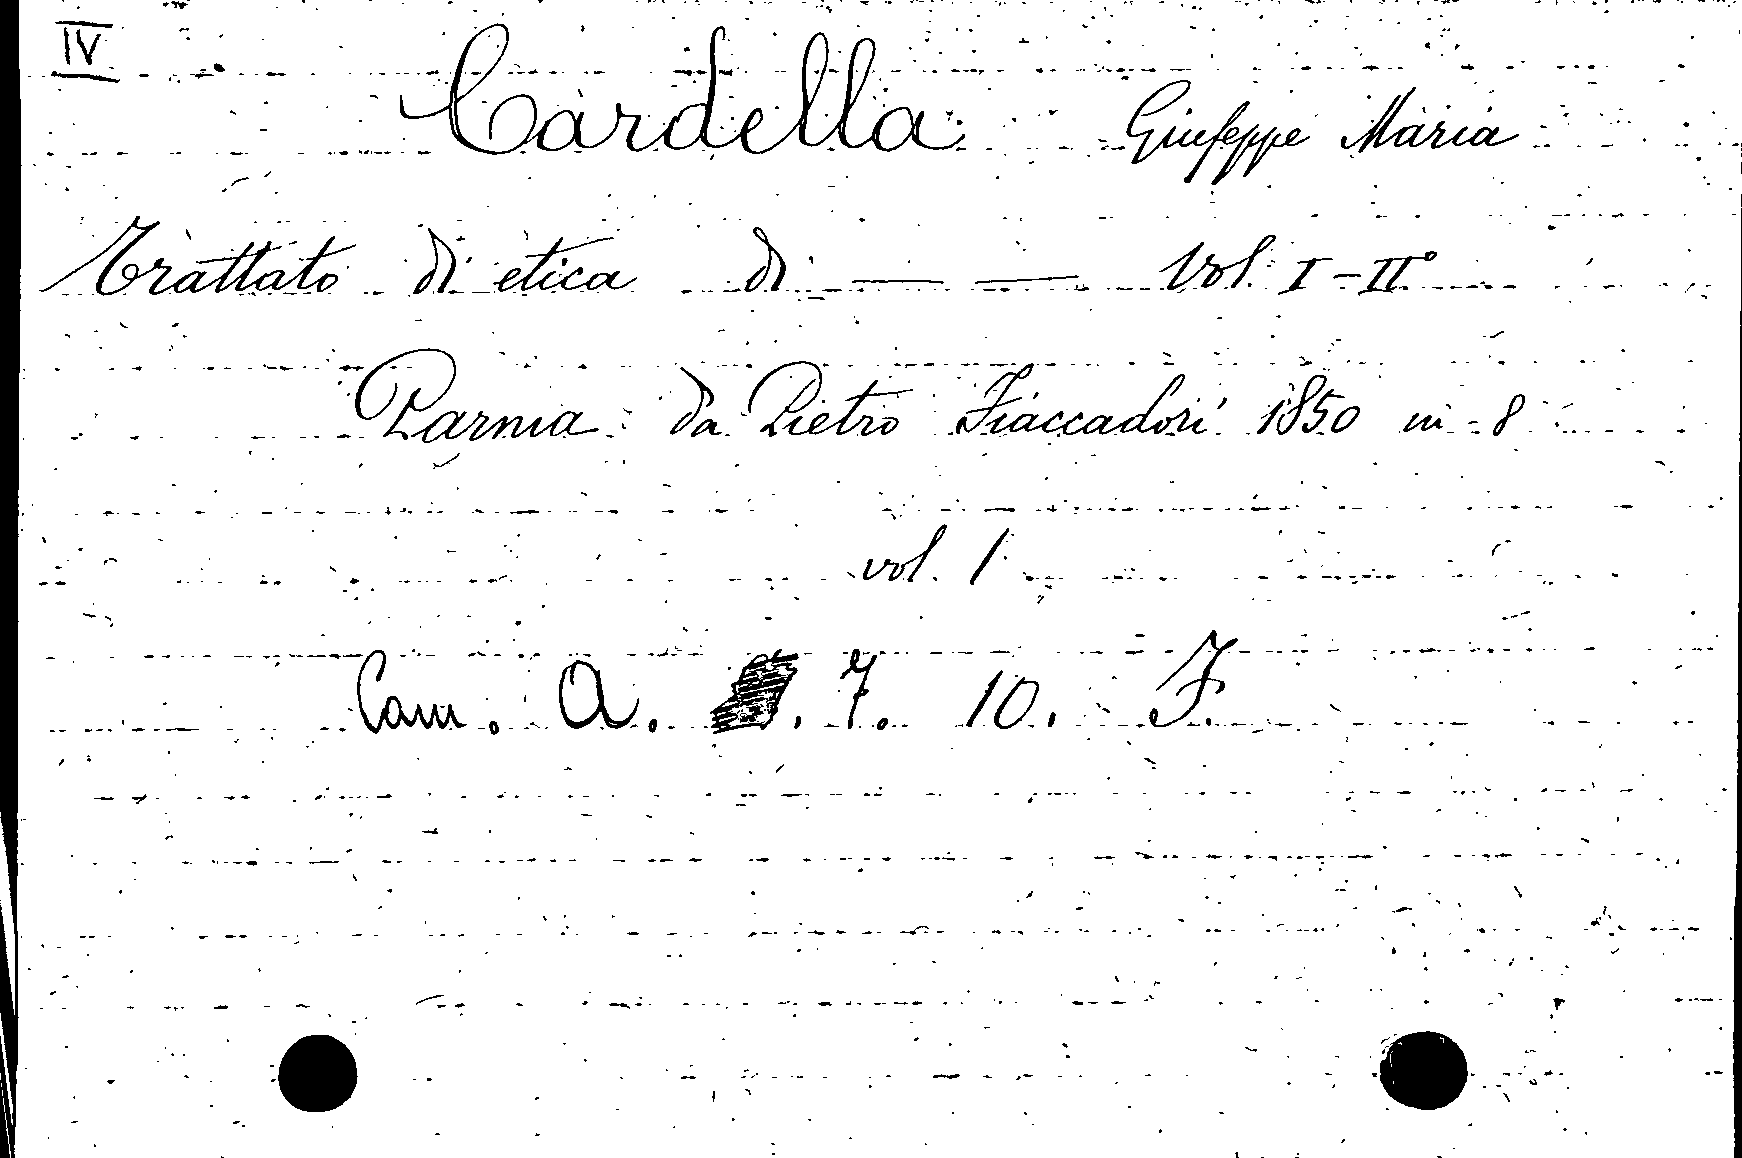 IV
Cardella Giuseppe Maria
Trattato di etica di — — Vol. I - II°
Parma da Pietro Fiaccadori 1850 in 8
vol. 1
Cam. A. . 7. 10. F.